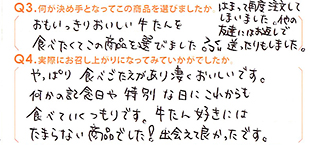 Q3.何が決め手となってこの商品を選びましたか。
おもいっきりおいしい牛たんを
食べたくてこの商品を選びました。
はまって再度注文して
しまいました。他の
友達にはお返しで
送ったりもしました。
Q4.実際にお召し上がりになってみていかがでしたか。
やっぱり食べごたえがあり凄くおいしいです。
何かの記念日や特別な日にこれからも
食べていくつもりです。牛たん好きには
たまらない商品でした!出会えて良かったです。